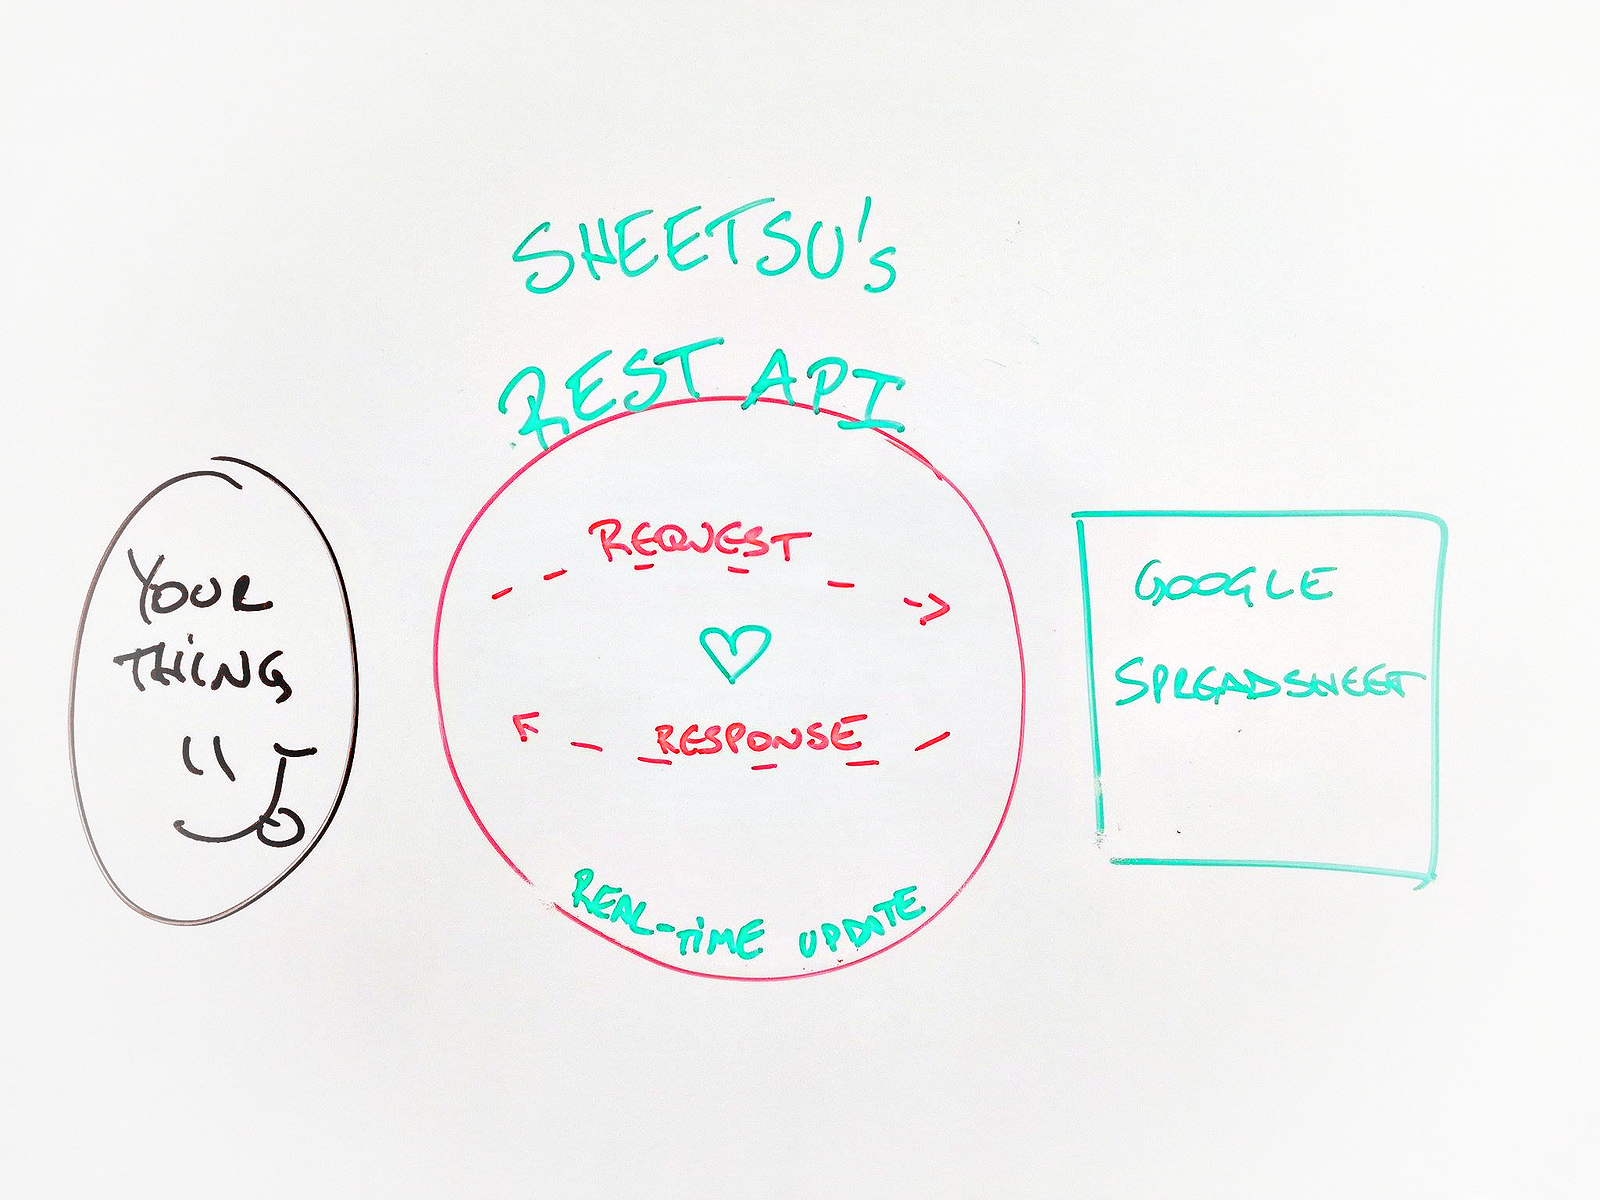 SHEETSU's
REST API
YOUR
THiNG
REQUEST
RESPONSE
REAL-TiME UPDATE
GOOGLE
SPREADSHEET